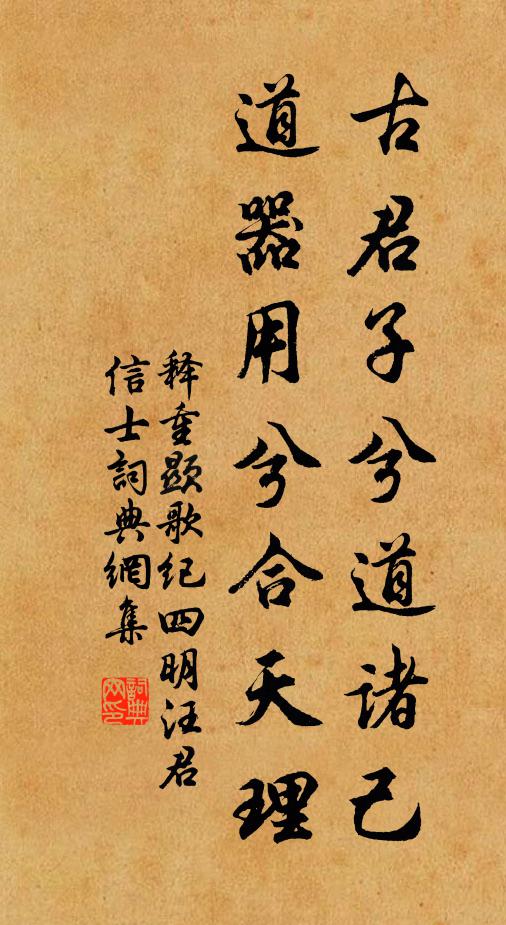 古君子兮道诸己
道器用兮合天理
释重顯歌纪四明汪君
信士詞典網集
詞典
网印